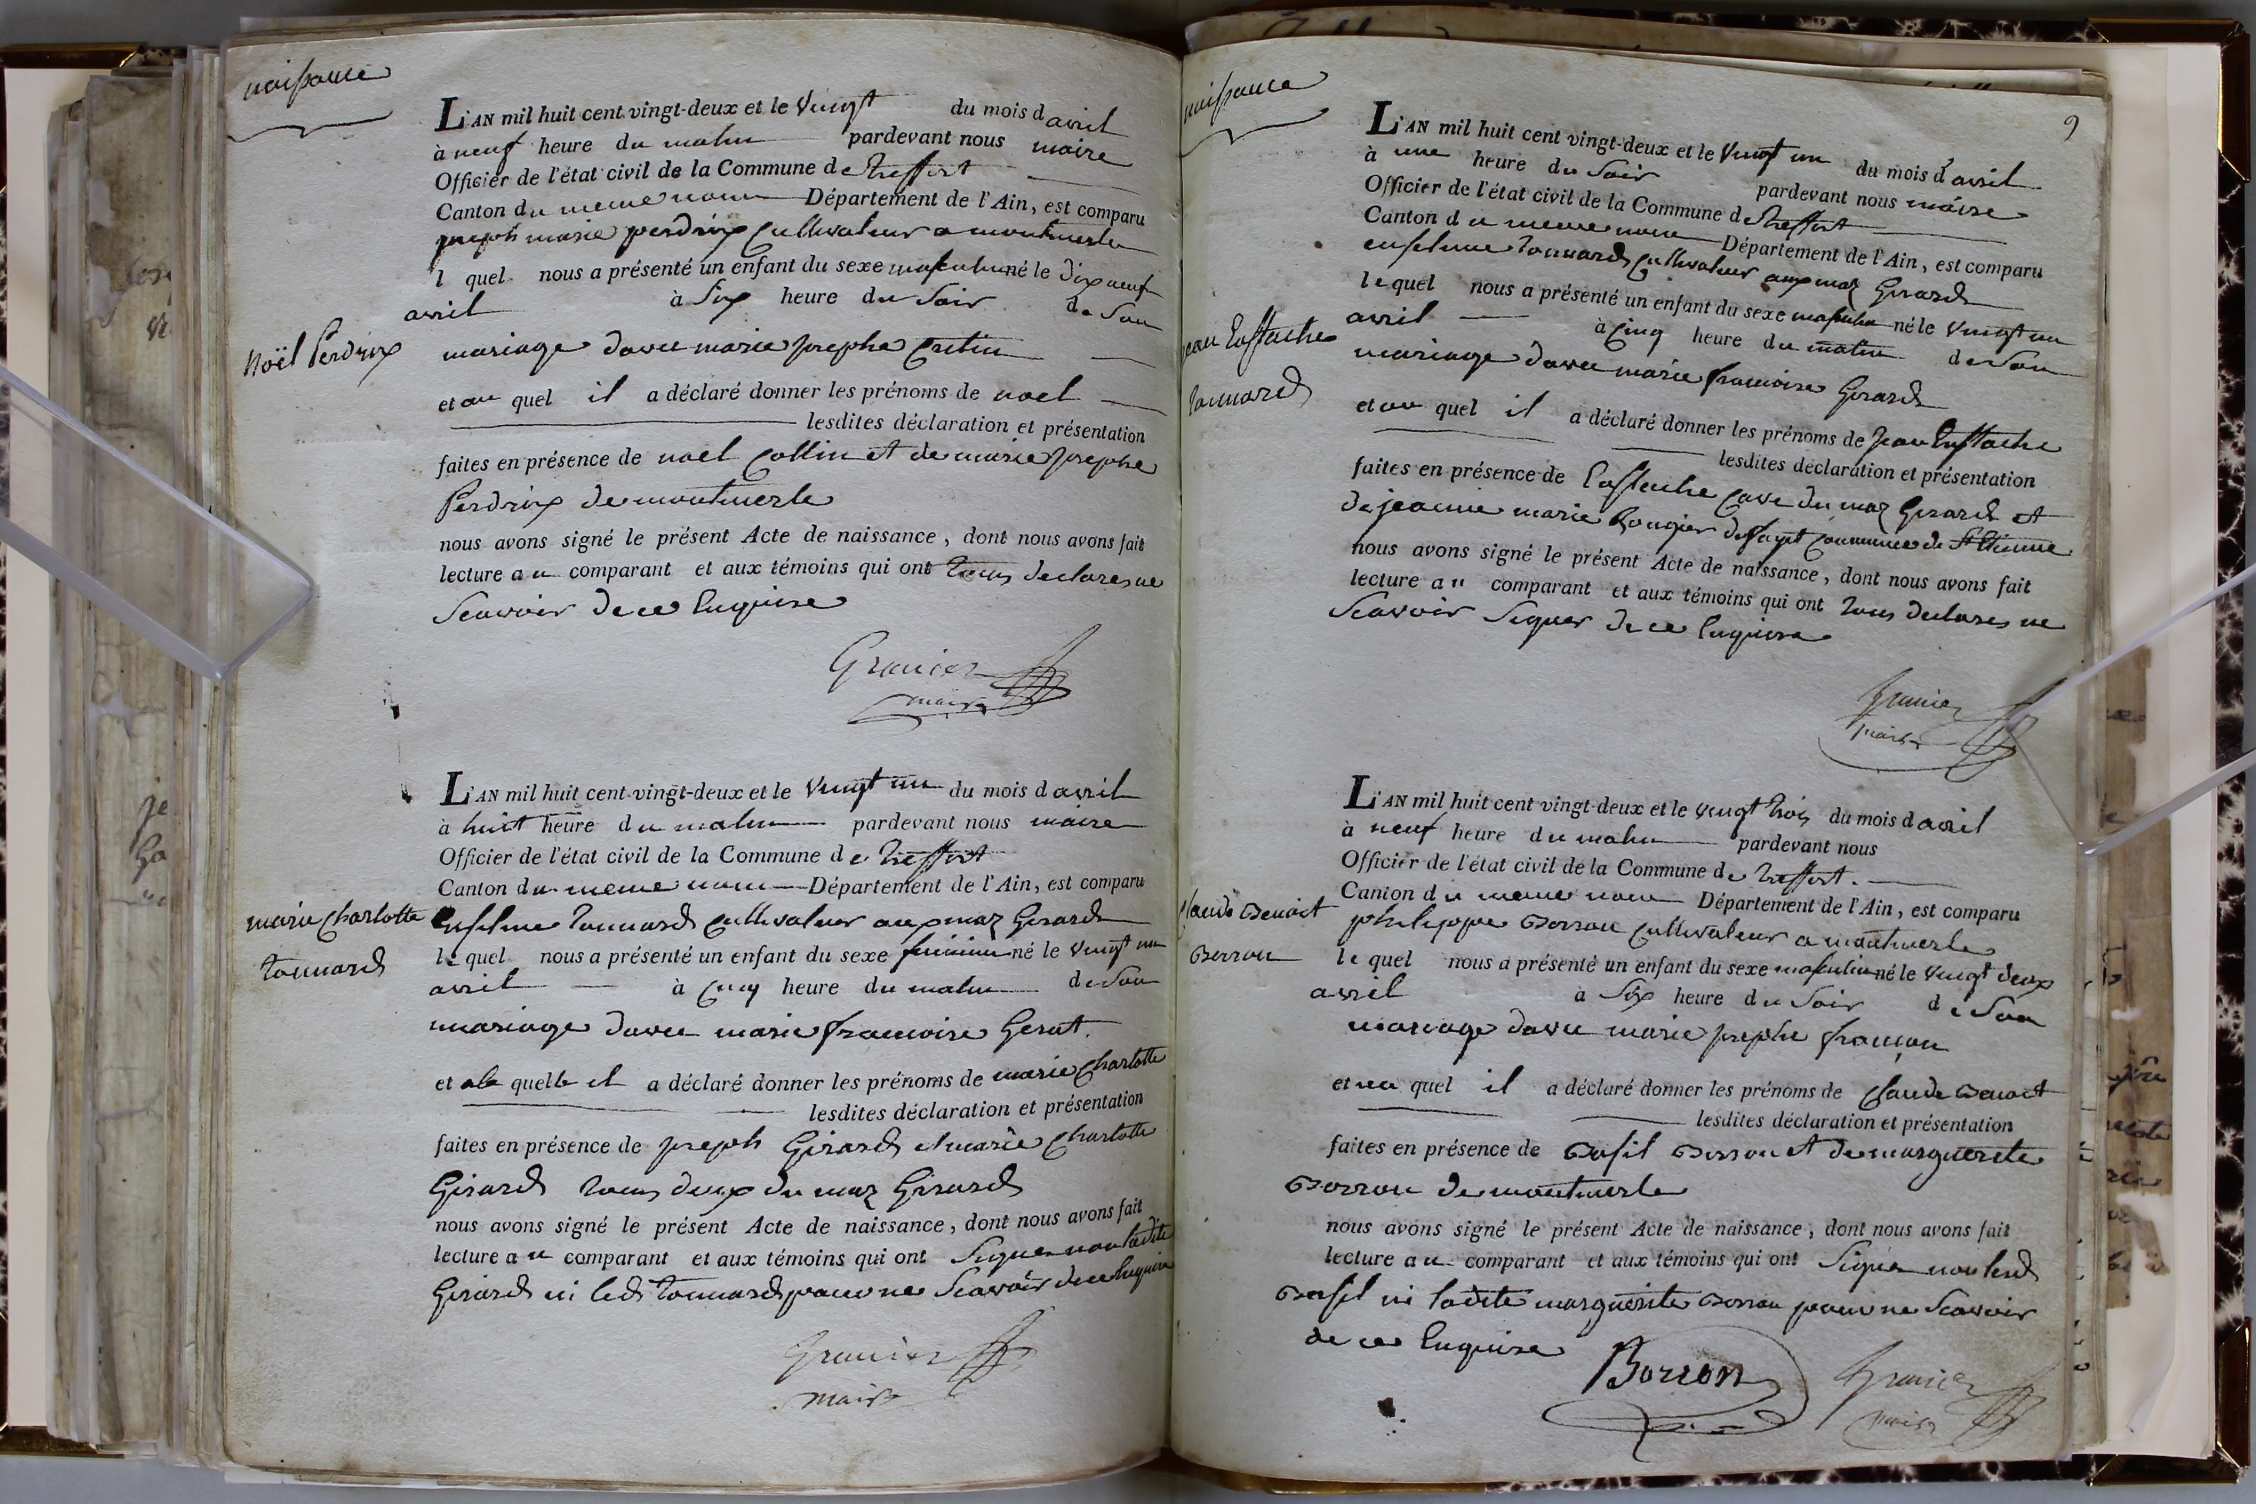 naissance
L'AN mil huit cent vingt-deux et le Vingt du mois d avril
à neuf heure du matin pardevant nous maire
Officier de l'état civil de la Commune de treffort
Canton du meme nom Département de l'Ain, est comparu
joseph marie perdrix Cultivateur a montmerle
l quel nous a présenté un enfant du sexe masculin né le dix neuf
avril à Six heure du Soir de Son
Noël Perdrix
mariage davec marie josephe Cretin
et au quel il a déclaré donner les prénoms de noel
lesdites déclaration et présentation
faites en présence de noel Collin et de marie josephe
Perdrix de montmerle
nous avons signé le présent Acte de naissance, dont nous avons fait
lecture au comparant et aux témoins qui ont tous declares ne
Scavoir de ce Enquise
Granier
maire
L'AN mil huit cent vingt-deux et le Vingt un du mois d avril
à huit heure du matin pardevant nous maire
Officier de l'état civil de la Commune de treffort
Canton du meme nom Département de l'Ain, est comparu
marie Charlotte
tonnard
enselme tonnard Cultivateur aux maz Girard
le quel nous a présenté un enfant du sexe feminin né le Vingt un
avril à Cinq heure du matin de Son
mariage davec marie francoise Gerat.
et a la quelle il a déclaré donner les prénoms de marie Charlotte
lesdites déclaration et présentation
faites en présence de joseph Girard et marie Charlotte
Girard tous deux du maz Girard
nous avons signé le présent Acte de naissance, dont nous avons fait
lecture au comparant et aux témoins qui ont Signer non ladite
Girard ni led tonnard pour ne Scavoir de ce Enquise
Granier
maire
9
naissance
L'AN mil huit cent vingt-deux et le Vingt un du mois d'avril
à une heure du Soir pardevant nous maire
Officier de l'état civil de la Commune de treffort
Canton du meme nom Département de l'Ain, est comparu
enselme tonnard Cultivateur aux maz Girard
le quel nous a présenté un enfant du sexe masculin né le Vingt un
avril à Cinq heure du matin de Son
jean Eustache
tonnard
mariage davec marie francoise Girard
et au quel il a déclaré donner les prénoms de jean Eustache
lesdites déclaration et présentation
faites en présence de Eustache Cave du maz Girard et
de jeanne marie Rougier Commune de St Etienne
nous avons signé le présent Acte de naissance, dont nous avons fait
lecture au comparant et aux témoins qui ont tous declares ne
Scavoir Signer de ce Enquise
Granier
maire
L'AN mil huit cent vingt-deux et le vingt trois du mois d avril
à neuf heure du matin pardevant nous
Officier de l'état civil de la Commune de treffort.
Canton du meme nom Département de l'Ain, est comparu
Claude Benoit
Borron
philippe Borron Cultivateur a montmerle
le quel nous a présenté un enfant du sexe masculin né le Vingt deux
avril à Six heure du Soir de Son
mariage davec marie josephe francon
et au quel il a déclaré donner les prénoms de Claude Benoit
lesdites déclaration et présentation
faites en présence de Basil Borron et de marguerite
Borron de montmerle
nous avons signé le présent Acte de naissance, dont nous avons fait
lecture au comparant et aux témoins qui ont Signer non led
Basil ni ladite marguerite Borron pour ne Scavoir
de ce Enquise
Borron
Granier
maire